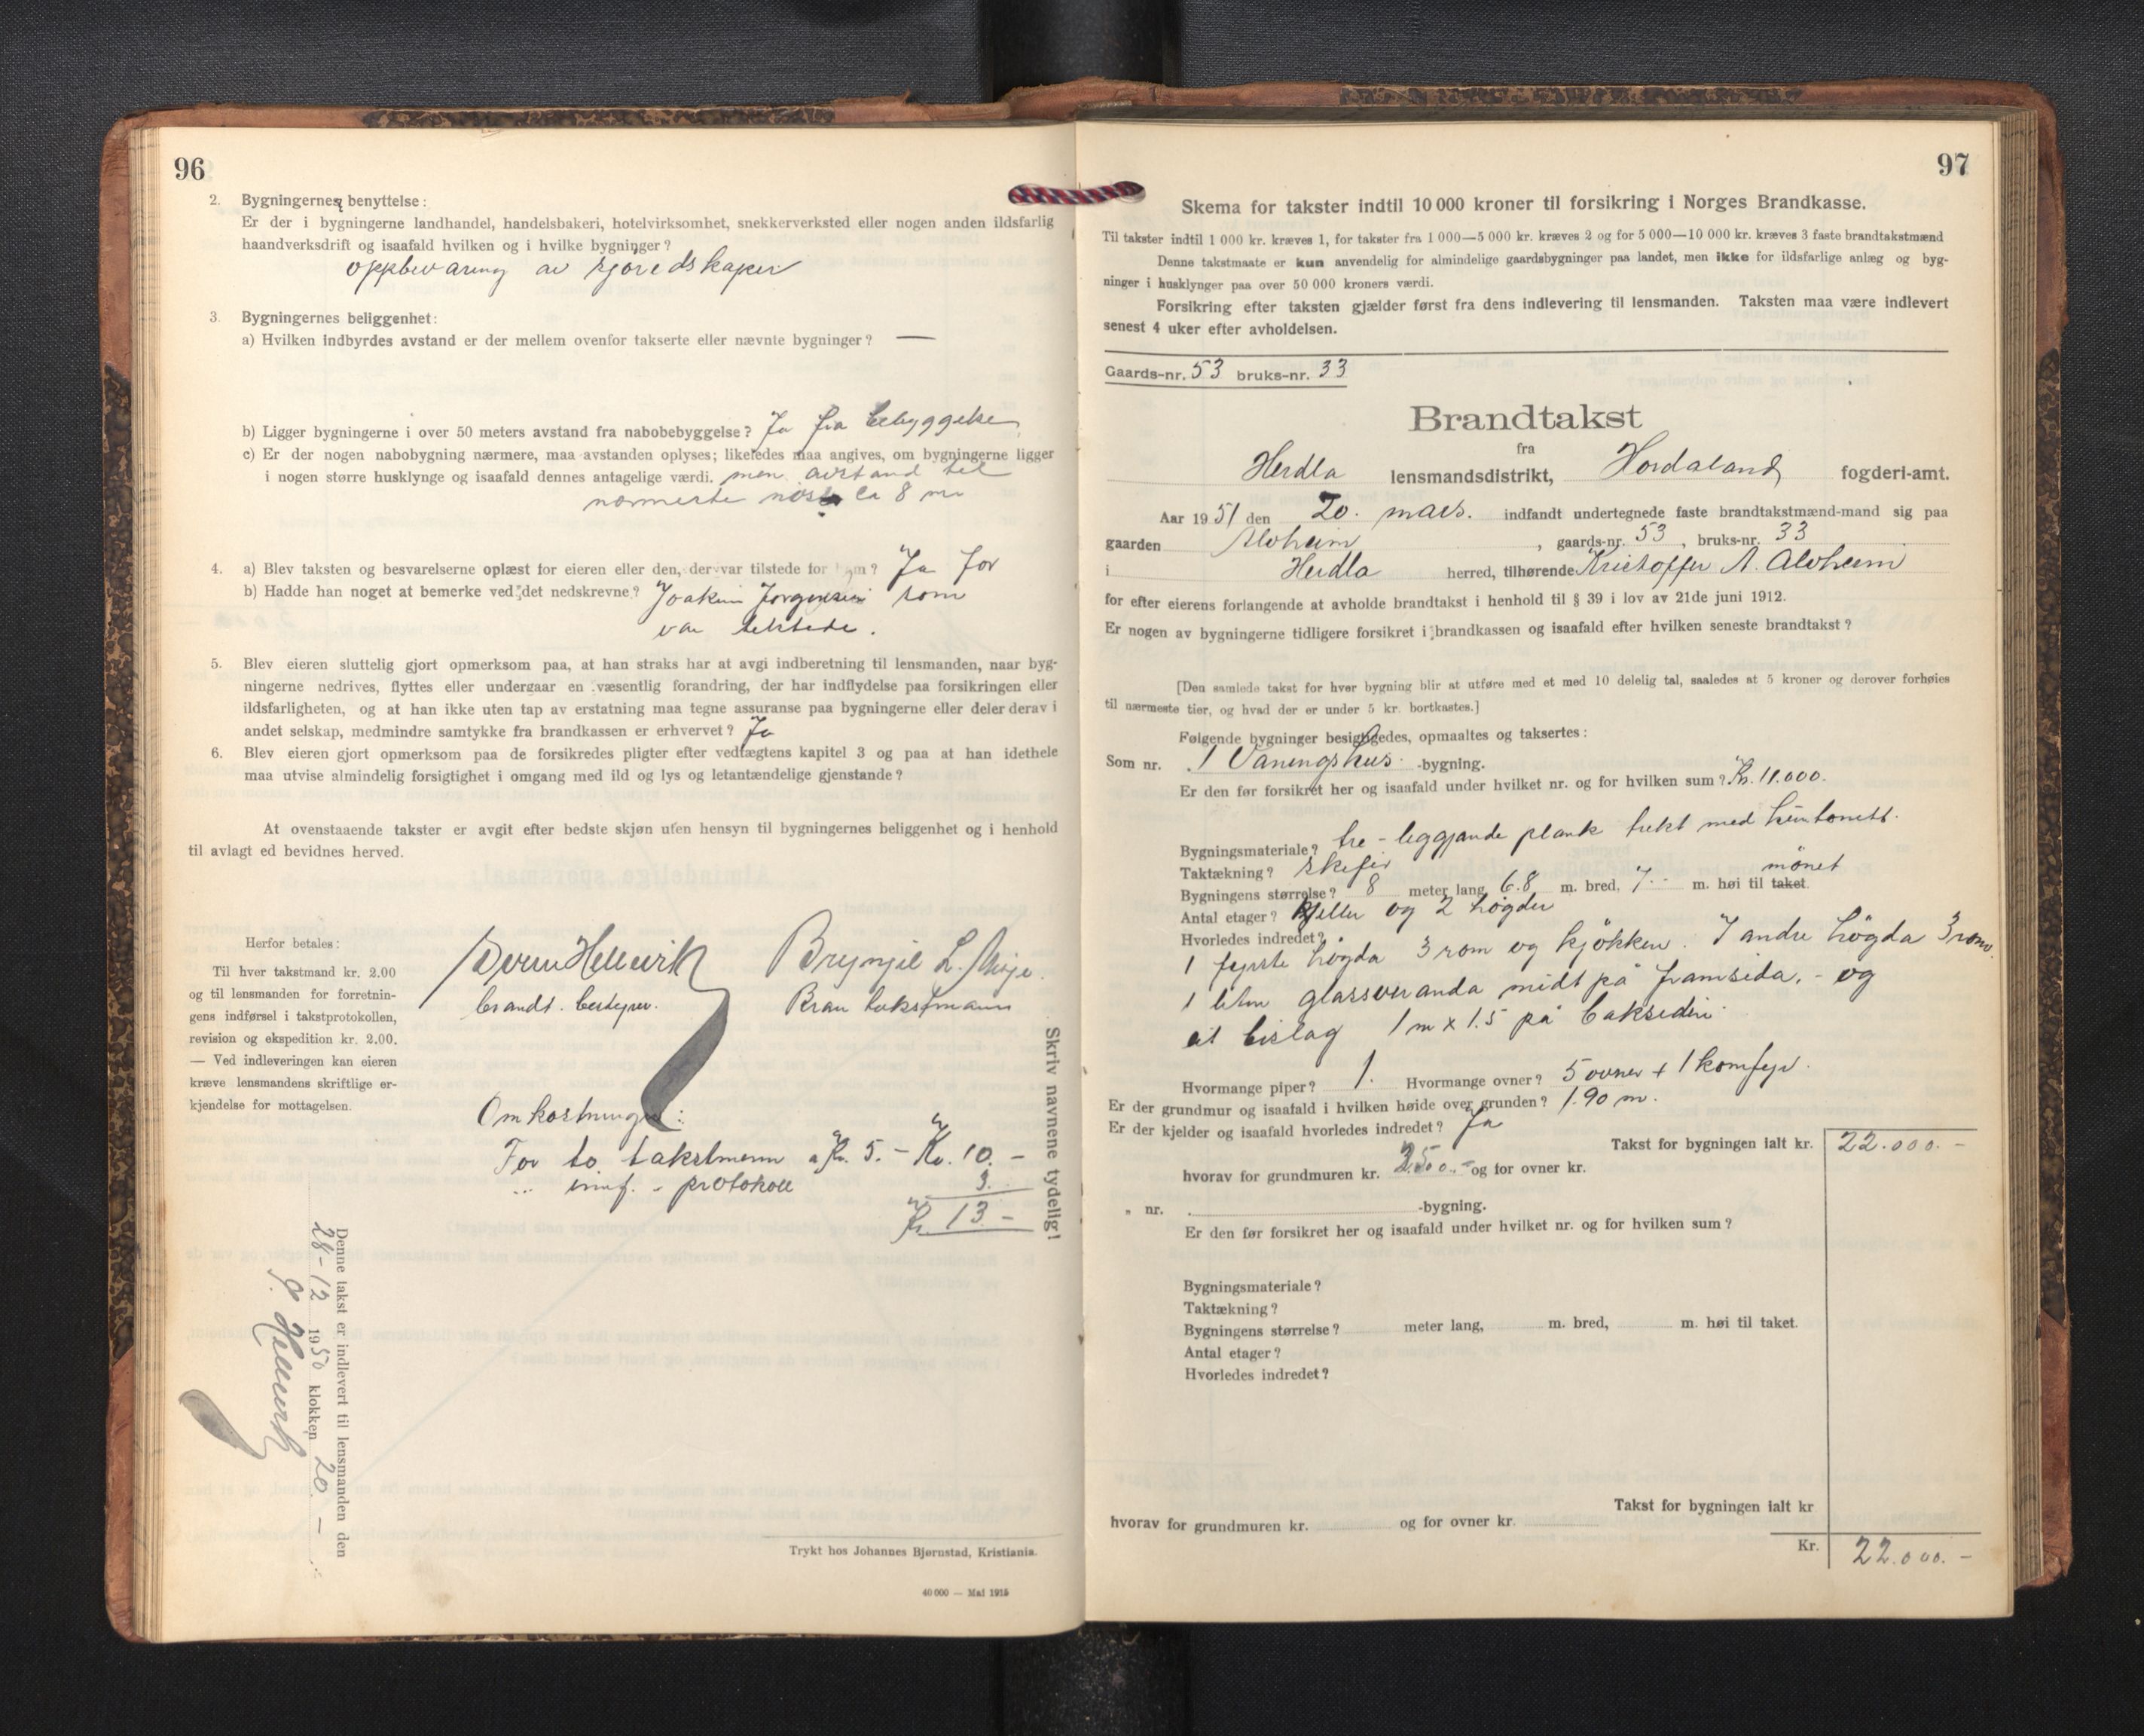 96
2. Bygningernes benyttelse:
Er der i bygningerne landhandel, handelsbakeri, hotelvirksomhet, snekkerverksted eller nogen anden ildsfarlig
haandverksdrift og isaafald hvilken og i hvilke bygninger?
oppbevaring av sjøredskaper
3. Bygningernes beliggenhet:
a) Hvilken indbyrdes avstand er der mellem ovenfor takserte eller nævnte bygninger? —
b) Ligger bygningerne i over 50 meters avstand fra nabobebyggelse? Ja fra bebyggelse
c) Er der nogen nabobygning nærmere, maa avstanden oplyses; likeledes maa angives, om bygningerne ligger
i nogen større husklynge og isaafald dennes antagelige værdi. men avstand til
nærmeste ca 8 m
4. a) Blev taksten og besvarelserne oplæst for eieren eller den, der var tilstede for ham? Ja for
b) Hadde han noget at bemerke ved det nedskrevne? Joakim Jørgensen som
var tilstede.
5. Blev eieren sluttelig gjort opmerksom paa, at han straks har at avgi indberetning til lensmanden, naar byg-
ningerne nedrives, flyttes eller undergaar en væsentlig forandring, der har indflydelse paa forsikringen eller
ildsfarligheten, og at han ikke uten tap av erstatning maa tegne assuranse paa bygningerne eller deler derav i
andet selskap, medmindre samtykke fra brandkassen er erhvervet? Ja
6. Blev eieren gjort opmerksom paa de forsikredes pligter efter vedtægtens kapitel 3 og paa at han idethele
maa utvise almindelig forsigtighet i omgang med ild og lys og letantændelige gjenstande?
At ovenstaaende takster er avgit efter bedste skjøn uten hensyn til bygningernes beliggenhet og i henhold
til avlagt ed bevidnes herved.
Herfor betales:
Til hver takstmand kr. 2.00
og til lensmanden for forretnin-
gens indførsel i takstprotokollen,
revision og ekspedition kr. 2.00.
— Ved indleveringen kan eieren
kræve lensmandens skriftlige er-
kjendelse for mottagelsen.
Hellevik Brynjel L.
brandt. bestyrer. takstmann
Skriv navnene tydelig!
Omkostninger:
For to takstmenn a Kr. 5.- Kr. 10.-
" innf. - protokoll 3.
Kr. 13.-
Denne takst er indlevert til lensmanden den
28-12 1950 klokken 20 —
Hellevik
Trykt hos Johannes Bjørnstad, Kristiania.
40 000 — Mai 1915
97
Skema for takster indtil 10 000 kroner til forsikring i Norges Brandkasse.
Til takster indtil 1 000 kr. kræves 1, for takster fra 1 000—5 000 kr. kræves 2 og for 5 000—10 000 kr. kræves 3 faste brandtakstmænd
Denne takstmaate er kun anvendelig for almindelige gaardsbygninger paa landet, men ikke for ildsfarlige anlæg og byg-
ninger i husklynger paa over 50 000 kroners værdi.
Forsikring efter taksten gjælder først fra dens indlevering til lensmanden. Taksten maa være indlevert
senest 4 uker efter avholdelsen.
Gaards-nr. 53 bruks-nr. 33
Brandtakst
fra
Herdla lensmandsdistrikt, Hordaland fogderi-amt.
Aar 1951 den 20. mars. indfandt undertegnede faste brandtakstmænd-mand sig paa
gaarden Alvheim, gaards-nr. 53, bruks-nr. 33
i Herdla herred, tilhørende Kristoffer A. Alvheim
for efter eierens forlangende at avholde brandtakst i henhold til § 39 i lov av 21de juni 1912.
Er nogen av bygningerne tidligere forsikret i brandkassen og isaafald efter hvilken seneste brandtakst?
[Den samlede takst for hver bygning blir at utføre med et med 10 delelig tal, saaledes at 5 kroner og derover forhøies
til nærmeste tier, og hvad der er under 5 kr. bortkastes.]
Følgende bygninger besigtigedes, opmaaltes og taksertes:
Som nr. 1 Vaningshus -bygning.
Er den før forsikret her og isaafald under hvilket nr. og for hvilken sum? Kr. 11.000.
Bygningsmateriale? tre - leggjande plank tekt med
Taktækning? skifer
Bygningens størrelse? 8 meter lang 6.8 m. bred, 7.- m. høi til taket. mönet
Antal etager? Kjeller og 2 høgder
Hvorledes indredet?
I fyrste høgda 3 rom og kjøkken. I andre høgda 3 rom.
1 liten glassveranda midt på framsida. - og
eit bislag 1 m x 1.5 på baksiden.
Hvormange piper? 1. Hvormange ovner? 5 ovner + 1 komfyr.
Er der grundmur og isaafald i hvilken høide over grunden? 1.90 m.
Er der kjelder og isaafald hvorledes indredet? Ja
Takst for bygningen ialt kr. 22.000.-
hvorav for grundmuren kr. 2500.- og for ovner kr.
" nr. -bygning.
Er den før forsikret her og isaafald under hvilket nr. og for hvilken sum?
Bygningsmateriale?
Taktækning?
Bygningens størrelse? meter lang, m. bred, m. høi til taket.
Antal etager?
Hvorledes indredet?
Takst for bygningen ialt kr
hvorav for grundmuren kr. og for ovner kr.
Kr. 22.000.-